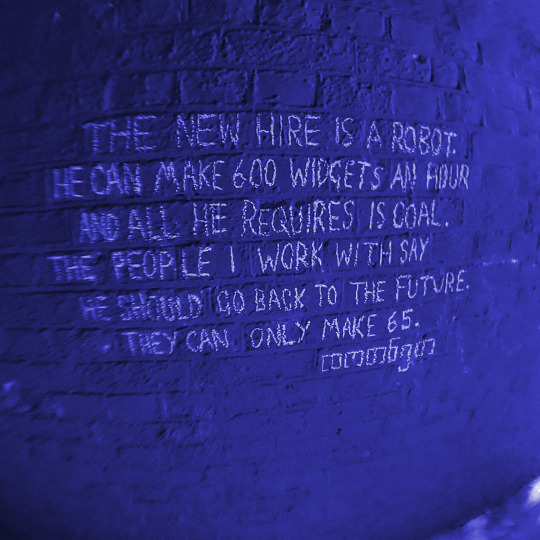 THE NEW HIRE IS A ROBOT.
HE CAN MAKE 600 WIDGETS AN HOUR
AND ALL HE REQUIRES IS COAL.
THE PEOPLE I WORK WITH SAY
HE SHOULD GO BACK TO THE FUTURE.
THEY CAN ONLY MAKE 65.